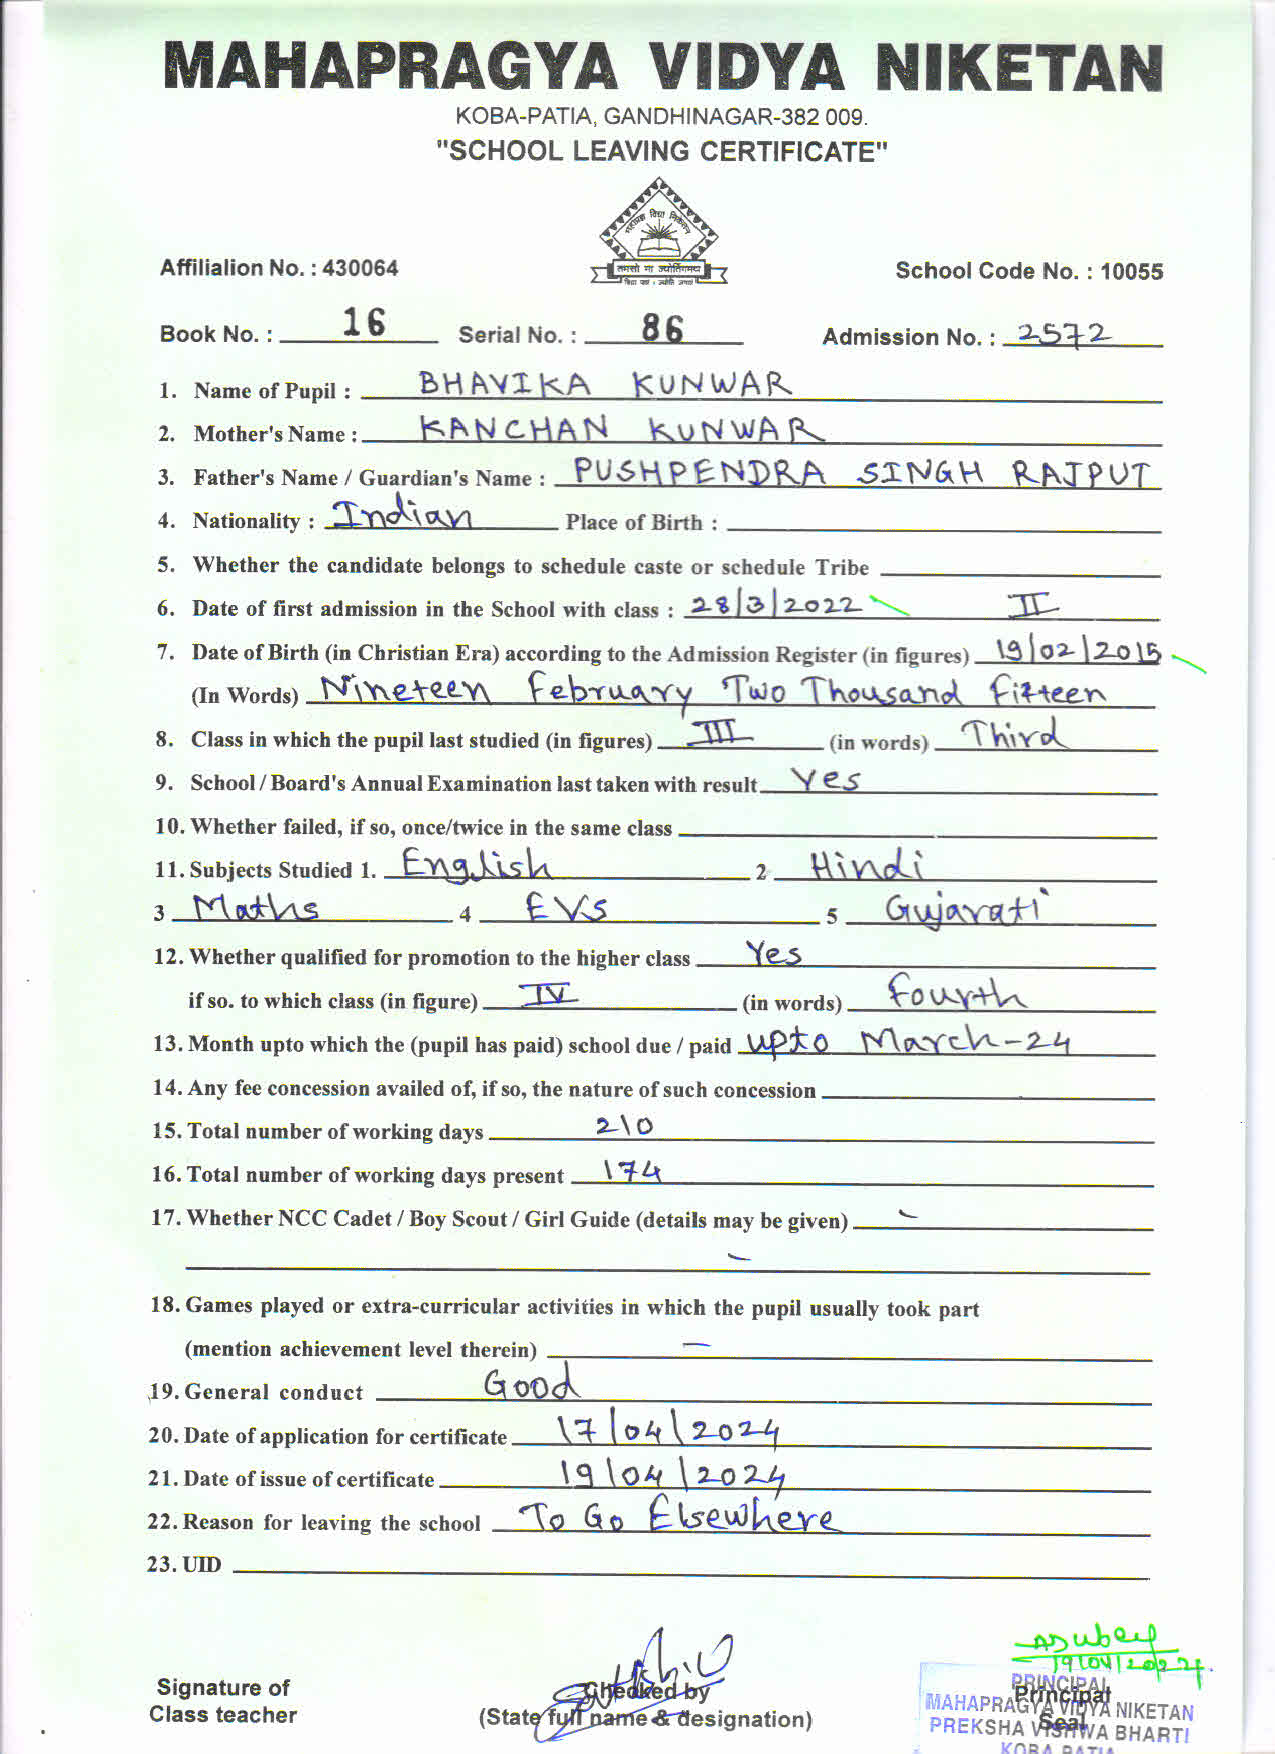 MAHAPRAGYA VIDYA NIKETAN
KOBA-PATIA, GANDHINAGAR-382 009.
"SCHOOL LEAVING CERTIFICATE"
महाप्रज्ञ विद्या निकेतन
तमसो मा ज्योतिर्गमय
Affilialion No. : 430064
School Code No. : 10055
Book No. : 16 Serial No. : 86 Admission No. : 2572
1. Name of Pupil : BHAVIKA KUNWAR
2. Mother's Name : KANCHAN KUNWAR
3. Father's Name / Guardian's Name : PUSHPENDRA SINGH RAJPUT
4. Nationality : Indian Place of Birth :
5. Whether the candidate belongs to schedule caste or schedule Tribe
6. Date of first admission in the School with class : 28/3/2022 II
7. Date of Birth (in Christian Era) according to the Admission Register (in figures) 19/02/2015
(In Words) Nineteen February Two Thousand Fifteen
8. Class in which the pupil last studied (in figures) III (in words) Third
9. School / Board's Annual Examination last taken with result Yes
10. Whether failed, if so, once/twice in the same class
11. Subjects Studied 1. English 2 Hindi
3 Maths 4 EVS 5 Gujarati
12. Whether qualified for promotion to the higher class Yes
if so. to which class (in figure) IV (in words) Fourth
13. Month upto which the (pupil has paid) school due / paid upto March-24
14. Any fee concession availed of, if so, the nature of such concession
15. Total number of working days 210
16. Total number of working days present 174
17. Whether NCC Cadet / Boy Scout / Girl Guide (details may be given) -
-
18. Games played or extra-curricular activities in which the pupil usually took part
(mention achievement level therein) -
19. General conduct Good
20. Date of application for certificate 17/04/2024
21. Date of issue of certificate 19/04/2024
22. Reason for leaving the school To Go Elsewhere
23. UID
ADubey
19/04/2024
Signature of
Class teacher
Checked by
(State full name & designation)
Principal
Seal
PRINCIPAL
MAHAPRAGYA VIDYA NIKETAN
PREKSHA VISHWA BHARTI
KOBA PATIA